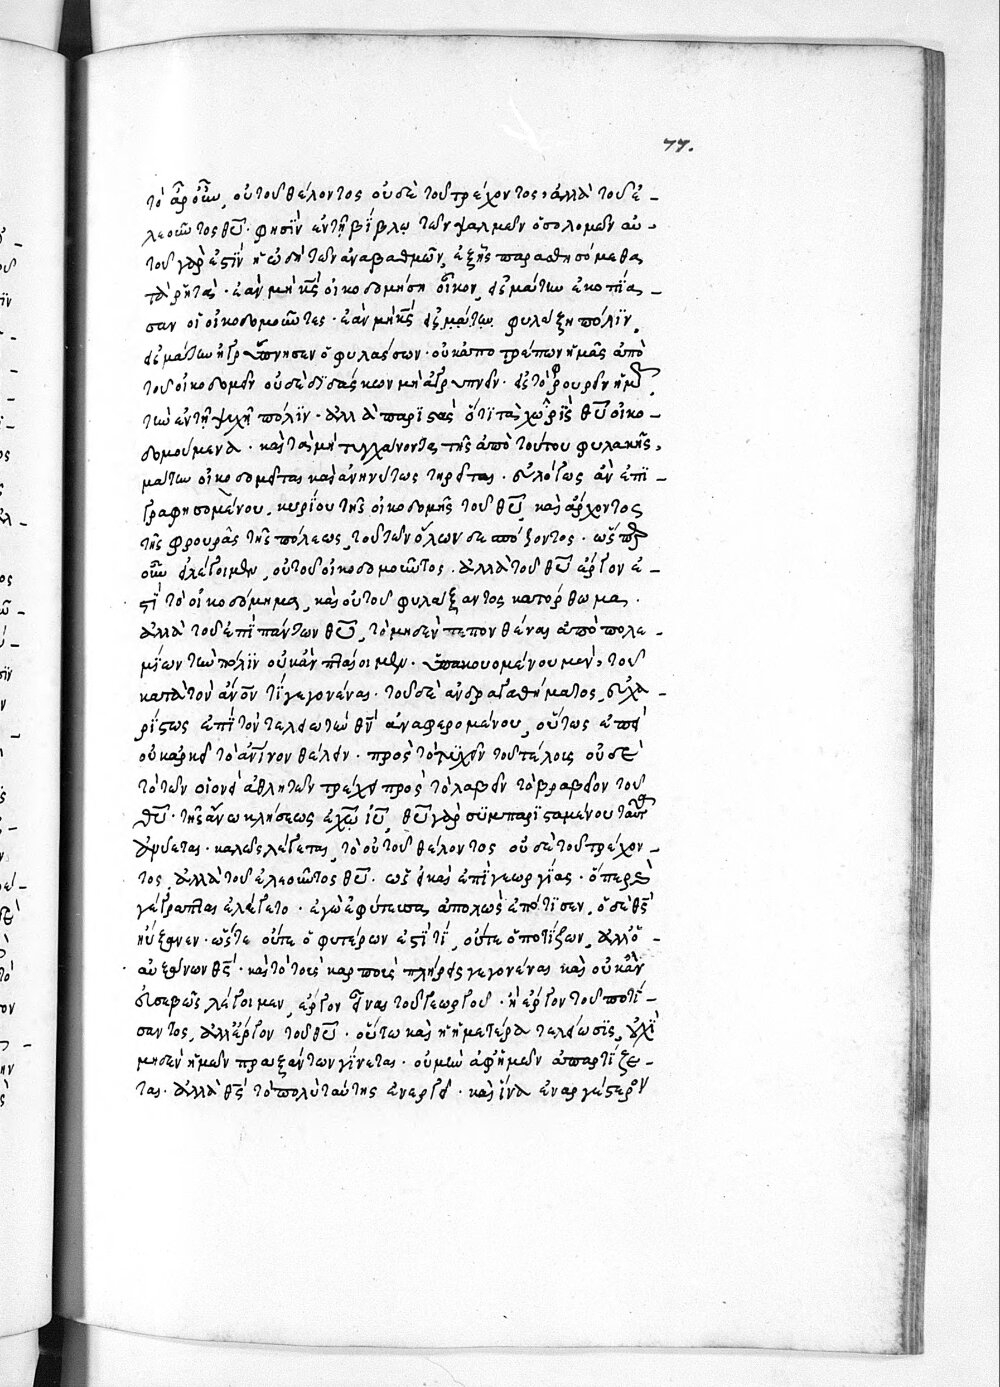 77.
τὸ ἆρ οὖν, οὐ τοῦ θέλοντος οὐδὲ τοῦ τρέχοντος, ἀλλὰ τοῦ ἐ-
λεοῦντος θυ̅. φησὶν ἐν τῇ βίβλῳ τῶν ψαλμῶν ὁ σολομῶν αὐ-
τοῦ γάρ ἐστιν ἡ ὠδὴ τῶν ἀναβαθμῶν, ἐξ ἧς παραθησόμεθα
τὰ ῥητά. ἐὰν μὴ κς̅ οἰκοδομήσῃ οἶκον, εἰς μάτην ἐκοπία-
σαν οἱ οἰκοδομοῦντες. ἐὰν μὴ κς̅ εἰς μάτην φυλάξῃ πόλιν,
εἰς μάτην ἠγρύπνησεν ὁ φυλάσσων. οὐκ ἀποτρέπων ἡμᾶς ἀπὸ
τοῦ οἰκοδομεῖν οὐδὲ διδάσκων μὴ ἀγρυπνεῖν. εἰς τὸ φρουρεῖν ἡμῶν
τὴν ἐν τῇ ψυχῇ πόλιν. ἀλλὰ παριστὰς ὅτι τὰ χωρὶς θυ̅ οἰκο-
δομούμενα. καὶ τὰ μὴ τυγχάνοντα τῆς ἀπὸ τούτου φυλακῆς,
μάτην οἰκοδομεῖται καὶ ἀνηνύτως τηρεῖται. εὐλόγως ἂν ἐπι-
γραφησομένου, κυρίου τῆς οἰκοδομῆς τοῦ θυ̅, καὶ ἄρχοντος
τῆς φρουρᾶς τῆς πόλεως, τοῦ τῶν ὅλων δεσπόζοντος. ὥσπερ
οὖν εἰ λέγοιμεν, οὐ τοῦ οἰκοδομοῦντος. ἀλλὰ τοῦ θυ̅ ἔργον ἐ-
στὶ τὸ οἰκοδόμημα, καὶ οὐ τοῦ φυλάξαντος κατόρθωμα.
ἀλλὰ τοῦ ἐπὶ πάντων θυ̅, τὸ μηδὲν πεπονθέναι ἀπὸ πολε-
μίων τὴν πόλιν οὐκ ἂν πταίοιμεν. ὑπακουομένου μὲν, τοῦ
κατὰ τὸν ἄνον̅ τὶ γεγονέναι. τοῦ δὲ ἀνδραγαθήματος, εὐχα-
ρίστως ἐπὶ τὸν τελειωτὴν θν̅ ἀναφερομένου, οὕτως ἐπεὶ
οὐκ ἀρκεῖ τὸ ἀνινον̅ θέλειν. πρὸς τὸ τυχεῖν τοῦ τέλους οὐδὲ
τὸ τῶν οἱονεὶ ἀθλητῶν τρέχειν πρὸς τὸ λαβεῖν τὸ βραβεῖον τοῦ
θυ̅. τῆς ἄνω κλήσεως ἐν χω̅ ιυ̅, θυ̅ γὰρ συμπαρισταμένου ταῦτα
ἀνύεται. καλῶς λέγεται, τὸ οὐ τοῦ θέλοντος οὐδὲ τοῦ τρέχον-
τος, ἀλλὰ τοῦ ἐλεοῦντος θυ̅. ὡς εἰ καὶ ἐπὶ γεωργίας. ὅπερ δὲ
γέγραπται ἐλέγετο. ἐγὼ ἐφύτευσα, ἀπολὼς ἐπότισεν, ὁ δὲ θς̅
ηὔξανεν. ὥστε οὔτε ὁ φυτεύων ἐστὶ τί, οὔτε ὁ ποτίζων, ἀλλ' ὁ
αὐξάνων θς̅. καὶ τὸ τοὺς καρποὺς πλήρεις γεγονέναι καὶ οὐκ ἂν
εὐσεβῶς λέγοιμεν, ἔργον εἶναι τοῦ γεωργοῦ. ἢ ἔργον τοῦ ποτί-
σαντος, ἀλλ' ἔργον τοῦ θυ̅. οὕτω καὶ ἡ ἡμετέρα τελείωσις, οὐχὶ
μηδὲν ἡμῶν πραξάντων γίνεται. οὐ μὴν ἀφ' ἡμῶν ἀπαρτίζε-
ται. ἀλλὰ θς̅ τὸ πολὺ ταύτης ἐνεργεῖ. καὶ ἵνα ἐναργέστερον